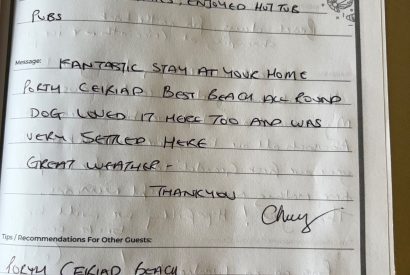 ENJOYED HOT TUB
PUBS
Message: FANTASTIC STAY AT YOUR HOME
PORTH CEIRIAD BEST BEACH ALL ROUND
DOG LOVED IT HERE TOO AND WAS
VERY SETTLED HERE
GREAT WEATHER -
THANKYOU
Tips / Recommendations For Other Guests:
PORTH CEIRIAD BEACH